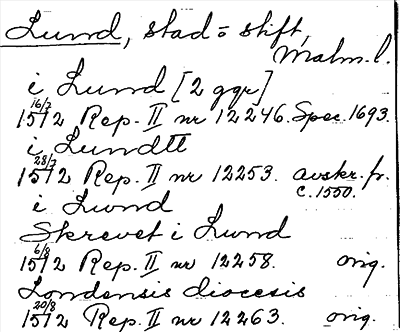 Lund, stad o stift,
Malm. l.
i Lund [2 ggr]
16/7 1512 Rep. II nr 12246. Spec. 1693.
i Lundtt
28/7 1512 Rep. II nr 12253. avskr. fr. c. 1550.
i Lwnd
Skrevet i Lund
6/8 1512 Rep. II nr 12258. orig.
Londensis diocesis
20/8 1512 Rep. II nr 12263. orig.